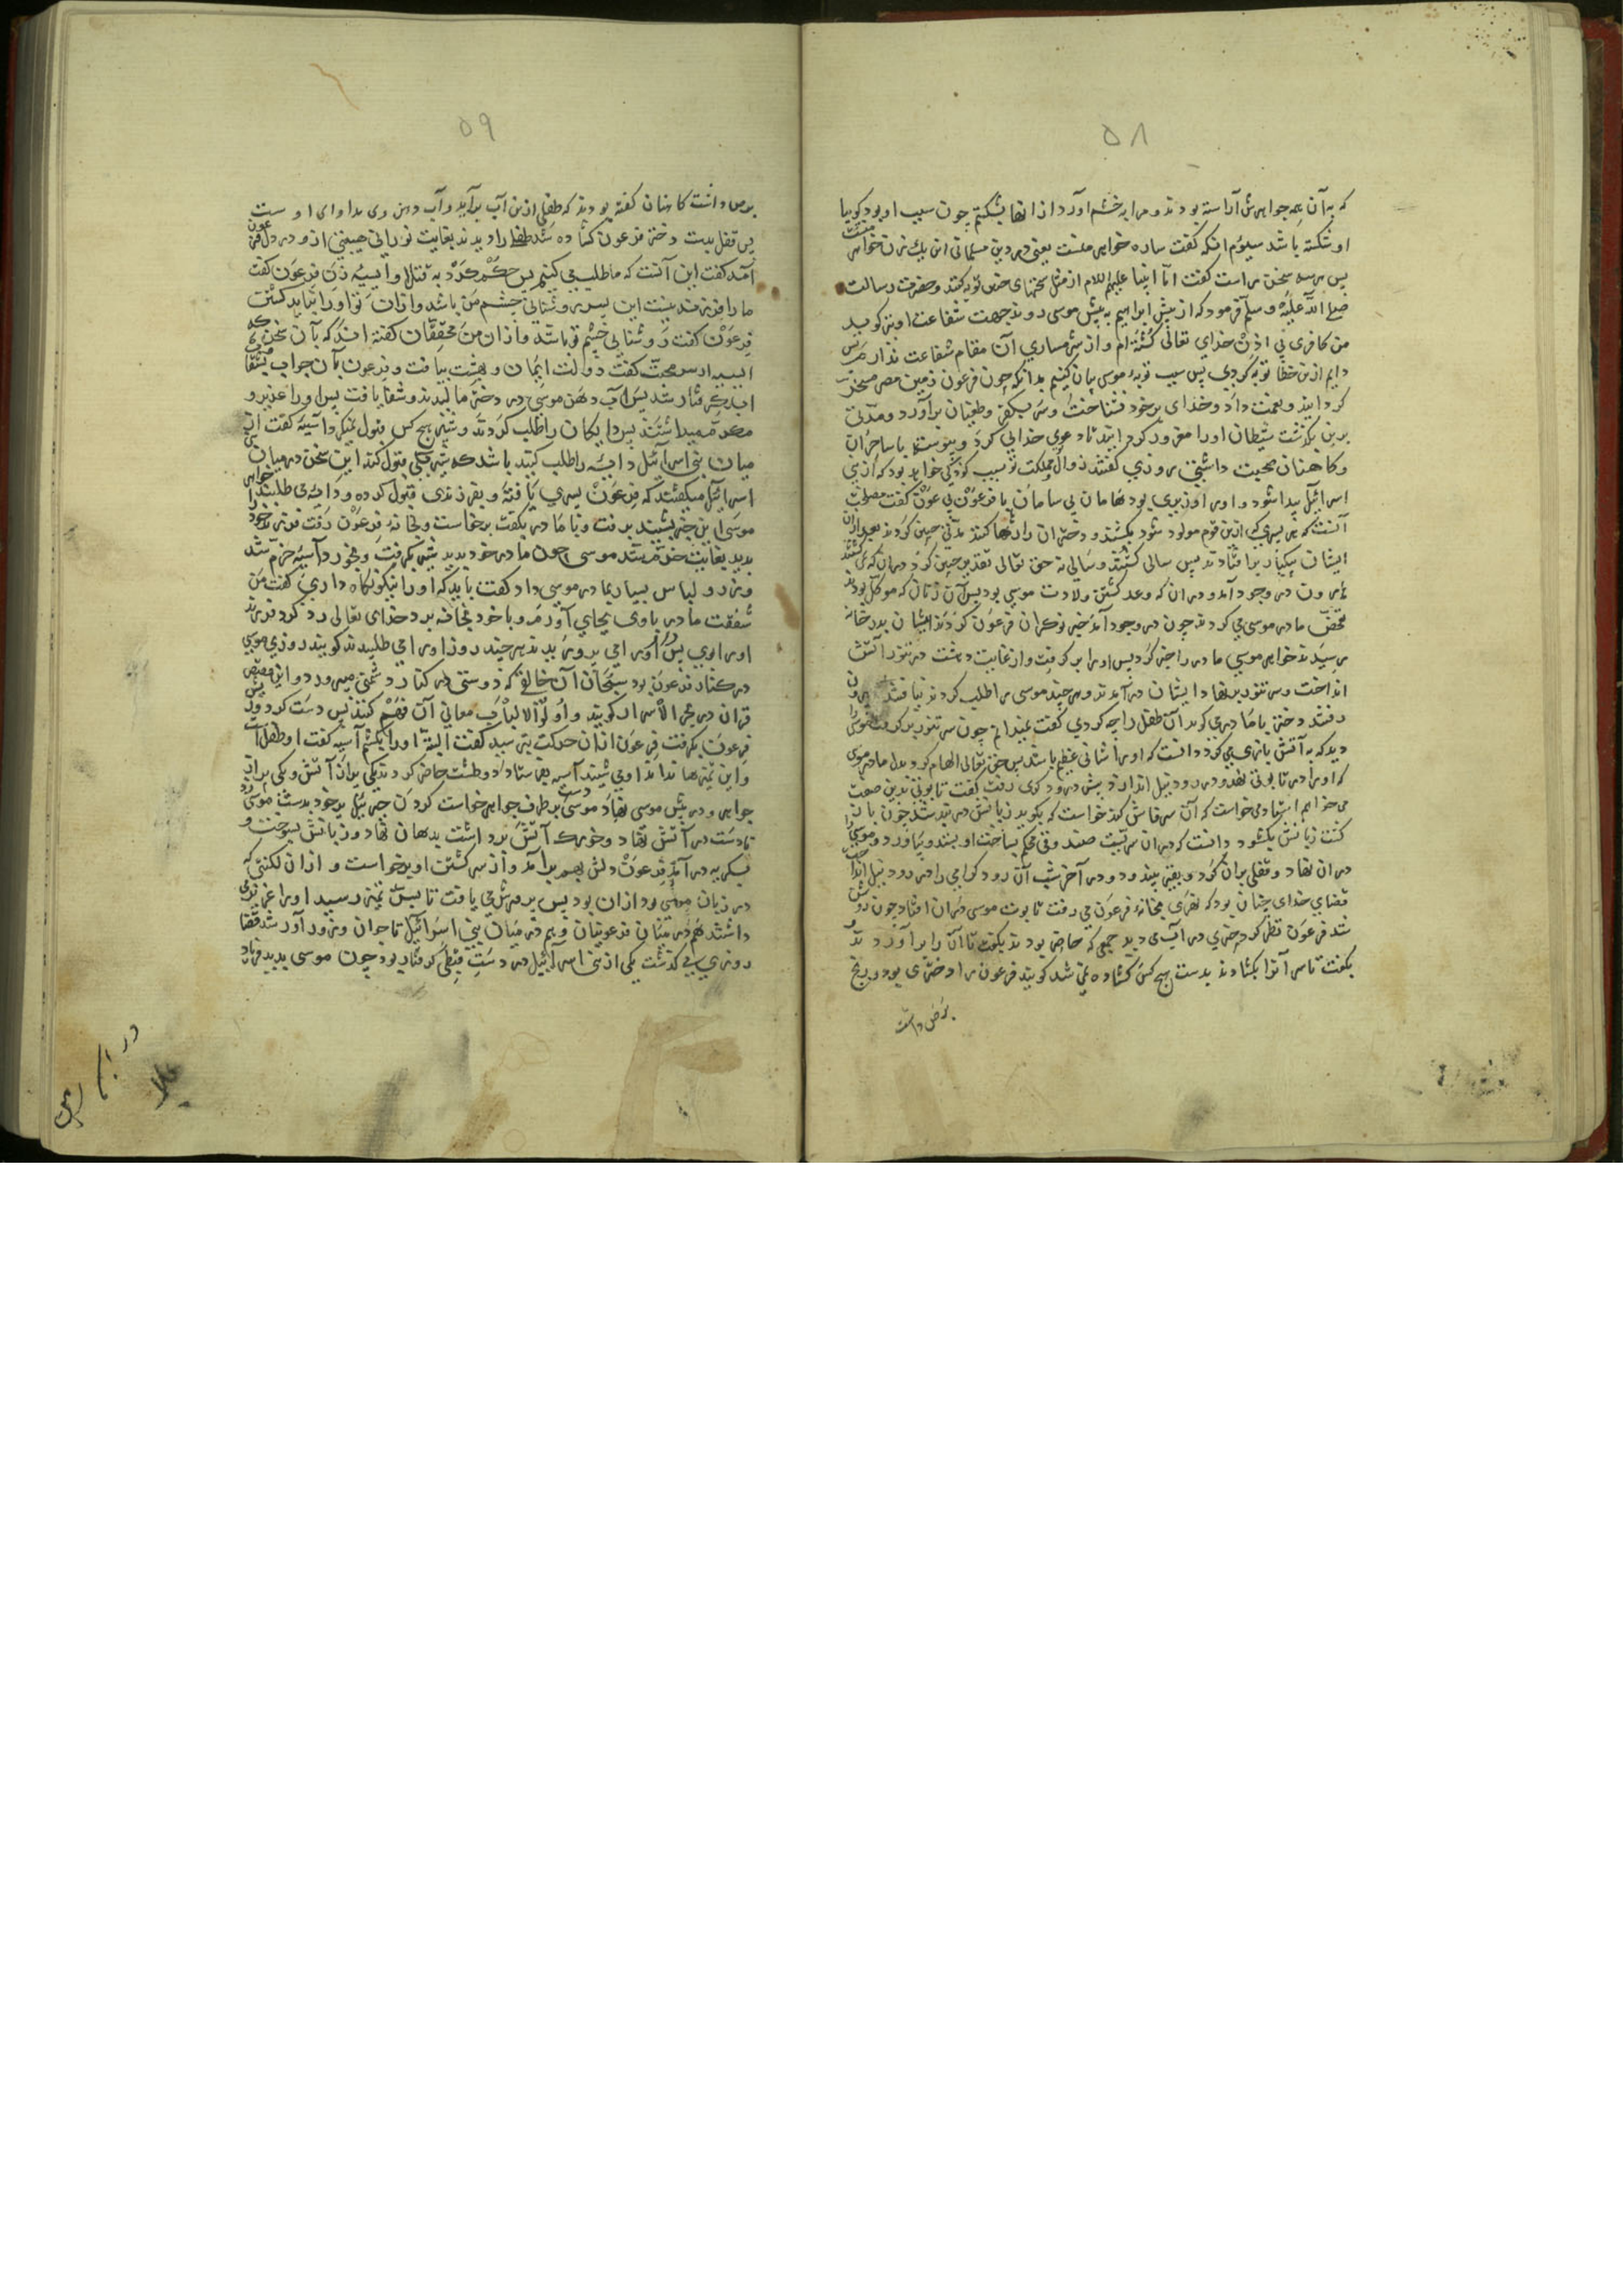 ٥٨
که به آن همه جواهرش آراسته بودند و مرا به خشم آورد از آنها بشکستم چون سبب او بود گوییا
او شکسته باشد سیوم آنکه گفت ساره خواهر منست یعنی در دین مسلمانی
پس هر سه سخن راست گفت اما انبیا علیهم السلام از مثل سخنهای چنین توبه کنند و حضرت رسالت
صلی الله علیه و سلم فرمود که از پیش ابراهیم به پیش موسی روند جهت شفاعت او نیز گوید
من کافری بی اذن خدای تعالی کشته‌ام و از شرمساری آن مقام شفاعت ندارم پس
دایم ازین خطا توبه کردی پس سبب توبهٔ موسی بیان کنیم بدانکه چون فرعون زمین مصر مسخر
گردانید و نعمت داد و خدای بر خود نشناخت و سر بکفر و طغیان برآورد و مدتی
برین بگذشت شیطان اورا مغرور گردانید تا دعوی خدایی کرد و پیوسته با ساحران
و کاهنان صحبت داشتی روزی گفتند زوال مملکت تو بسبب کودکی خواهد بود که از بنی
اسرائیل پیدا شود و اورا وزیری بود هامان بی سامان با فرعون بی عون گفت مصلحت
آنست که هر پسری که ازین قوم مولود شود بکشند و دختران را رها کنند مدتی چنین کردند بعد ازان
ایشان بیکبار برافتادند پس سالی کشتند و سالی نه حق تعالی تقدیر چنین کرد در آن که نمی کشتند
هرون در وجود آمد و در آن که وعد کشتن ولادت موسی بود پس آن زنان که موکل بودند
تفحص مادر موسی می کردند چون در وجود آمد خبر نوکران فرعون کردند ایشان بدر خانه
رسیدند خواهر موسی مادر را خبر کرد پس او را برگرفت و از غایت دهشت در تنور آتش
انداخت و سر تنور بر نهاد ایشان درآمدند و هر چند موسی را طلب کردند نیافتند بیرون
رفتند دختر با مادر می گوید آن طفل را چه کردی گفت نمیدانم چون سر تنور برگرفت موسی را
دید که به آتش بازی می کرد دانست که او را شانی عظیم باشد پس حق تعالی الهام کرد بدل مادر موسی
که او را در تابوتی نهد و در رود نیل اندازد پیش درودگری رفت گفت تابوتی بدین صفت
می خواهم استاد می خواست که آن سر فاش کند خواست که بگوید زبانش در بند شد چون بان
گشت زبانش بگشود دانست که در آن سریست صندوقی محکم بساخت او بستد و بیاورد و موسی را
در آن نهاد و قفلی بران کرد و بقیر بیندود و در آخر شب آن رود گرامی را در رود نیل انداخت
قضای خدای چنان بود که نهری بخانهٔ فرعون می رفت تابوت موسی در آن افتاد چون روشن
شد فرعون نظر کرد چیزی در آب می دید جمعی که حاضر بودند بگفت تا آن را برآوردند
بگفت تا سر آنرا بگشادند بدست هیچ کس گشاده نمی شد گویند فرعون را دختری بود و رنج
برص داشت
٥٩
برص داشت کاهنان گفته بودند که طفلی ازین آب برآید و آب دهن وی مداوای اوست
پس قفل بدست دختر فرعون گشاده شد طفلی را دیدند بغایت نورانی هیبتی ازو در دل فرعون
آمد گفت این آنست که ما طلب می کنیم پس حکم کرد به قتل او آسیه زن فرعون گفت
ما را فرزند نیست این پسر روشنائی چشم من باشد و ازان تو او را نباید کشت
فرعون گفت روشنایی چشم تو باشد و ازان من محققان گفته اند که بآن سخن که
آسیه از سر محبت گفت دولت ایمان و بهشت بیافت و فرعون بآن جواب مشقت
ابد گرفتار شد پس آب دهن موسی در دختر مالیدند و شفا یافت پس او را عزیز و
مکرم میداشتند پس دایگان را طلب کردند و شیر هیچ کس قبول نمیکرد آسیه گفت از
میان بنی اسرائیل دایه را طلب کنید باشد که شیر قبول کند این سخن در میان بنی
اسرائیل میگفتند که فرعون پسری یافته و بفرزندی قبول کرده و دایه می طلبند خواهر
موسی این خبر بشنید برفت و با مادر بگفت برخاست و بخانهٔ فرعون رفت فرزند خود را
بدید بغایت خوش شد موسی چون مادر خود بدید شیر بگرفت و بخورد آسیه خرم شد
و زر و لباس بسیار بمادر موسی داد گفت باید که او را نیکو نگاه داری گفت من
شفقت مادر باوی بجای آورم و با خود بخانه برد خدای تعالی رد کرد فرزند
او را بوی پس او را می پرورانید هر چند روز او را می طلبیدند گویند روزی موسی
در کنار فرعون بود سبحان آن خالقی که دوستی در کنار دشمنی میپرورد و این قصه
قران در بحر الاسرار گویند و اولو الالباب معانی آن فهم کنند پس دست کرد و ریش
فرعون بگرفت فرعون ازان حرکت بترسید گفت البته او را بکشم آسیه گفت او طفل است
و این تمیزها نداند او می شنید آسیه بفرستاد دو طشت حاضر کردند یکی پر از آتش و یکی پر از
جواهر و در پیش موسی نهاد موسی دست بطرف جواهر خواست کردن جبرئیل پر خود بدست موسی زد
تا دست در آتش نهاد و خورده آتش برداشت بدهان نهاد و زبانش بسوخت و
بگریه درآمد فرعون دلش بهم برآمد و از سر کشتن او برخواست و ازان لکنتی که
در زبان موسی بود ازان بود پس پرورش می یافت تا بسن تمیز رسید او را عزیز می
داشتند هم در میان فرعونیان و هم در میان بنی اسرائیل تا جوان و زورآور شد قضا را
روزی می گذشت یکی از بنی اسرائیل در دست قبطی گرفتار بود چون موسی بدید فریاد